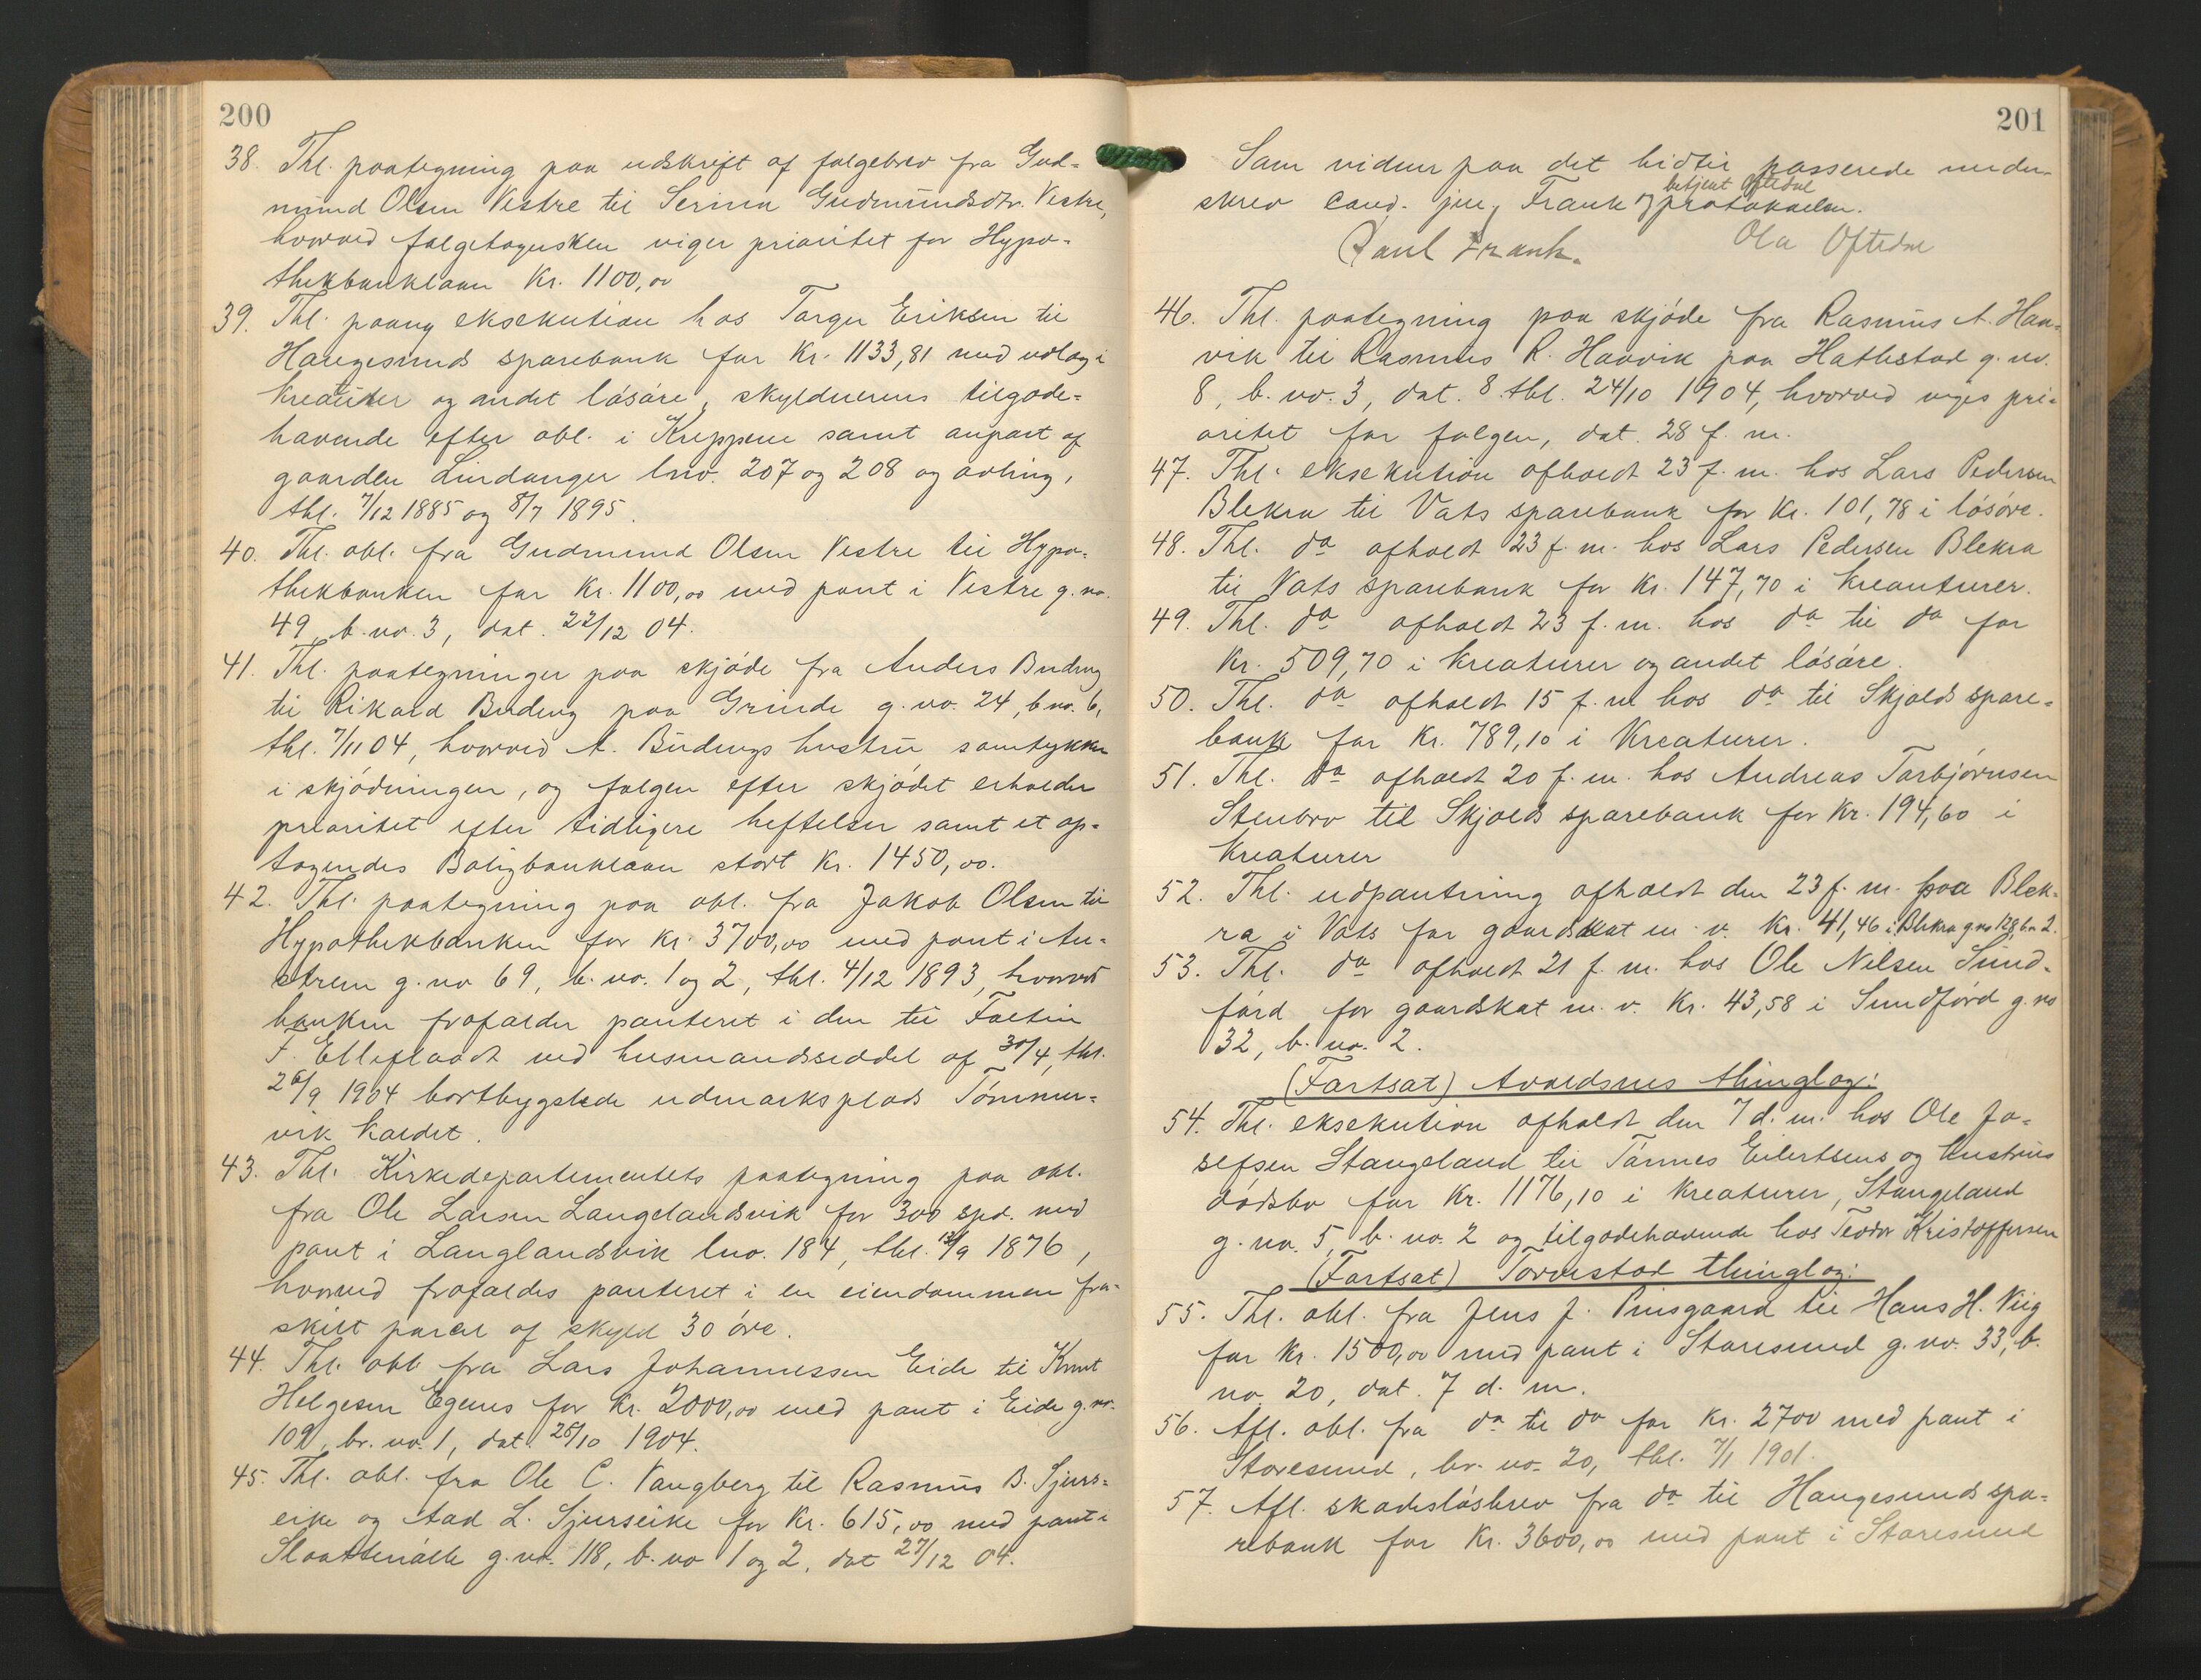 200
38. Thl. paategning paa udskrift af følgebrev fra Gud-
mund Olsen Vestre til Serina Gudmundsdtr. Vestre,
hvorved følgetageren viger prioritet for Hypo-
thekbanklaan Kr. 1100,00
39. Thl. paany eksekution hos Torger Eriksen til
Haugesunds sparebank for Kr. 1133,81 med udlæg i
kreaturer og andet løsøre, skyldnerens tilgode-
havende efter obl. i Kreppene samt anpart af
gaarden Lindanger lno. 207 og 208 og avling,
thl. 7/12 1885 og 8/7 1895.
40. Thl. obl. fra Gudmund Olsen Vestre til Hypo-
thekbanken for Kr. 1100,00 med pant i Vestre g. no.
49, b. no. 3, dat. 22/12 04.
41. Thl. paategninger paa skjøde fra Anders Buderg
til Rikard Buderg paa Grinde g. no. 24, b no. 6,
thl. 7/11 04, hvorved A. Budergs hustru samtykker
i skjødningen, og følgen efter skjødet erholder
prioritet efter tidligere heftelser samt et op-
tagendes Boligbanklaan stort Kr. 1450,00.
42. Thl. paategning paa obl. fra Jakob Olsen til
Hypothekbanken for Kr. 3700,00 med pant i Au-
strem g. no 69, b. no. 1 og 2, thl. 4/12 1893, hvorved
banken frafalder panteret i den til Faltin
T. Elleflaadt ved husmandsseddel af 30/4, thl.
26/9 1904 bortbygslede udmarksplads Tømmer-
vik kaldet.
43. Thl. Kirkedepartementets paategning paa obl.
fra Ole Larsen Langelandsvik for 300 spd. med
pant i Langlandsvik lno. 184, thl. 12/9 1876,
hvorved frafaldes panteret i en eiendommen fra-
skilt parcel af skyld 30 øre.
44. Thl. obl. fra Lars Johannessen Eide til Knut
Helgesen Egenes for Kr. 2000,00 med pant i Eide g. no.
109, br. no. 1, dat. 25/10 1904.
45. Thl. obl. fra Ole C. Vangberg til Rasmus B. Sjurs-
eike og Aad L. Sjurseike for Kr. 615,00 med pant i
g. no. 118, b. no 1 og 2, dat 27/12 04.
201
Som vidner paa det hidtil passerede under-
betjent Oftedal
skrev Cand. jur. Frank og protokollen.
Paul Frank.
Ola Oftedal
46. Thl. paategning paa skjøde fra Rasmus A. Haa-
vik til Rasmus R. Haavik paa Hatlestad g. no.
8, b. no. 3, dat. 8. thl. 24/10 1904, hvorved viges pri-
oritet for følgen, dat. 28 f. m.
47. Thl. eksekution afholdt 23 f. m. hos Lars Pedersen
Blekra til Vats sparebank for Kr. 101,78 i løsøre.
48. Thl. do afholdt 23 f. m. hos Lars Pedersen Blekra
til Vats sparebank for Kr. 147,70 i kreaturer.
49. Thl. do afholdt 23 f. m. hos do til do for
Kr. 509,70 i kreaturer og andet løsøre.
50. Thl. do afholdt 15 f. m hos do til Skjold spare-
bank for Kr. 789,10 i Kreaturer.
51. Thl. do afholdt 20 f. m. hos Andreas Torbjørnsen
Stenbro til Skjold sparebank for Kr. 194,60 i
kreaturer
52. Thl. udpantning afholdt den 23 f. m. paa Blek-
ra i Vats for gaardskat m. v. Kr. 41,46 i Blekra g no 128, bn 2.
53. Thl. do afholdt 21 f. m. hos Ole Nilsen Sund-
førd for gaardskat m. v. Kr. 43,58 i Sundførd g. no
32, b. no. 2.
(Fortsat) Avaldsnes thinglag:
54. Thl. eksekution afholdt den 7 d. m. hos Ole Jo-
sefsen Stangeland til Tønnes Eilertsens og hustrus
dødsbo for Kr. 1176,10 i kreaturer, Stangeland
g. no. 5, b. no. 2 og tilgodehavende hos Teodor Kristoffersen
(Fortsat) Torvestad thinglag:
55. Thl. obl. fra Jens J. Prisgaard til Hans H. Viig
for Kr. 1500,00 med pant i Storesund g. no. 33, b.
no. 20, dat. 7 d. m.
56. Afl. obl. fra do til do for Kr. 2700 med pant i
Storesund, br. no. 20, thl. 7/1 1901.
57. Afl. skadesløsbrev fra do til Haugesunds spa-
rebank for Kr. 3600,00 med pant i Storesund